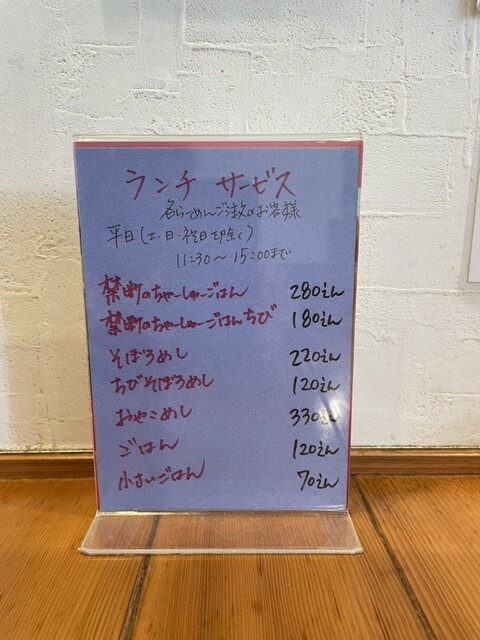 ランチ サービス
各らーめんご注文のお客様
平日(土・日・祝日を除く)
11:30〜15:00まで
禁断のちゃーしゅーごはん 280えん
禁断のちゃーしゅーごはんちび 180えん
そぼろめし 220えん
ちびそぼろめし 120えん
おやこめし 330えん
ごはん 120えん
小さいごはん 70えん